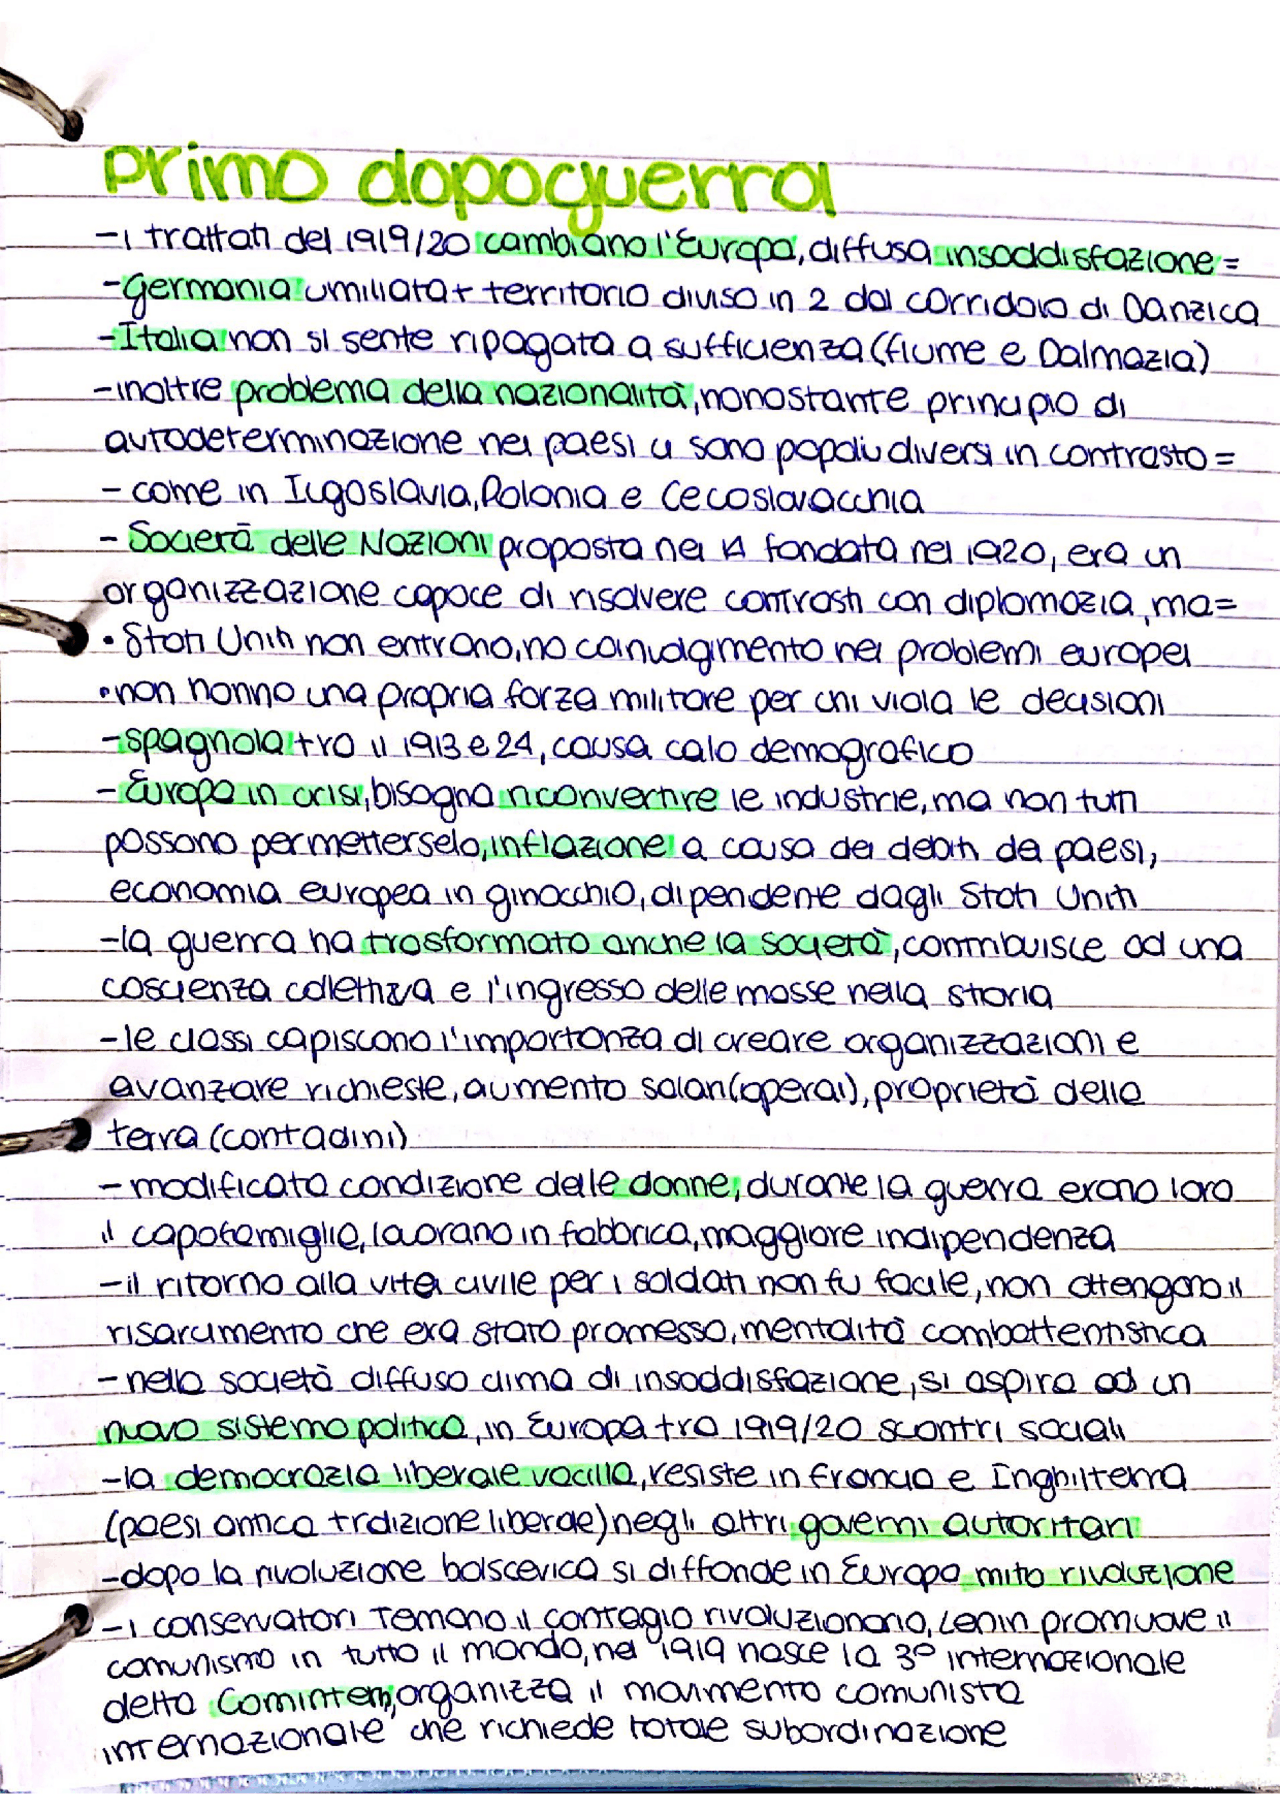 primo dopoguerra
-i trattati del 1919/20 cambiano l'Europa, diffusa insoddisfazione =
-Germania umiliata + territorio diviso in 2 dal corridoio di Danzica
-Italia non si sente ripagata a sufficienza (fiume e Dalmazia)
-inoltre problema della nazionalità, nonostante principio di
autodeterminazione nei paesi ci sono popoli diversi in contrasto =
- come in Iugoslavia, Polonia e Cecoslovacchia
- Società delle Nazioni proposta nei 14 fondata nel 1920, era un
organizzazione capace di risolvere contrasti con diplomazia, ma=
• Stati Uniti non entrano, no coinvolgimento nei problemi europei
• non hanno una propria forza militare per chi viola le decisioni
-spagnola tra il 1913 e 24, causa calo demografico
- Europa in crisi, bisogna riconvertire le industrie, ma non tutti
possono permetterselo, inflazione a causa dei debiti dei paesi,
economia europea in ginocchio, dipendente dagli Stati Uniti
-la guerra ha trasformato anche la società, contribuisce ad una
coscienza collettiva e l'ingresso delle masse nella storia
-le classi capiscono l'importanza di creare organizzazioni e
avanzare richieste, aumento salari (operai), proprietà della
terra (contadini)
- modificata condizione delle donne, durante la guerra erano loro
il capofamiglia, lavorano in fabbrica, maggiore indipendenza
-il ritorno alla vita civile per i soldati non fu facile, non ottengono il
risarcimento che era stato promesso, mentalità combattentistica
- nella società diffuso clima di insoddisfazione, si aspira ad un
nuovo sistema politico, in Europa tra 1919/20 scontri sociali
-la democrazia liberale vacilla, resiste in francia e Inghilterra
(paesi antica tradizione liberale) negli altri governi autoritari
-dopo la rivoluzione bolscevica si diffonde in Europa mito rivoluzione
-i conservatori temono il contagio rivoluzionario, Lenin promuove il
comunismo in tutto il mondo, nel 1919 nasce la 3° internazionale
detta Comintern, organizza il movimento comunista
internazionale che richiede totale subordinazione